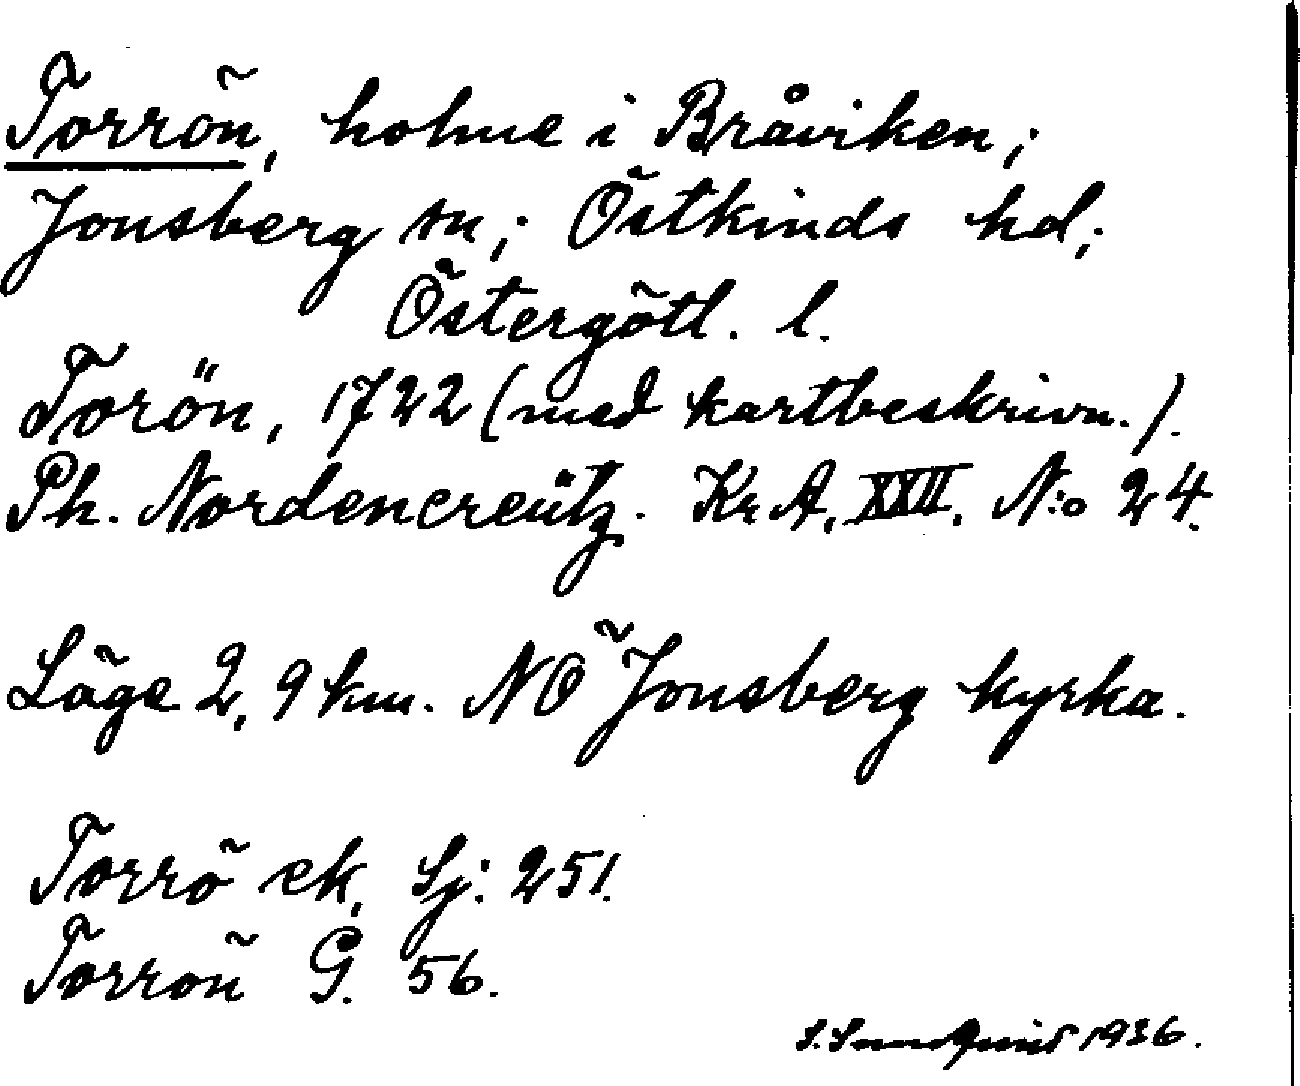 Torrön, holme i Bråviken;
Jonsberg sn; Östkinds hd;
Östergötl. l.
Torön, 1722 (med kartbeskrivn.).
Ph. Nordencreütz. Kr. A. XXII. N:o 24.
Läge 2,9 km. NO Jonsberg kyrka.
Torrö ek. Sj: 251.
Torrön G. 56.
S. Sundquist 1936.